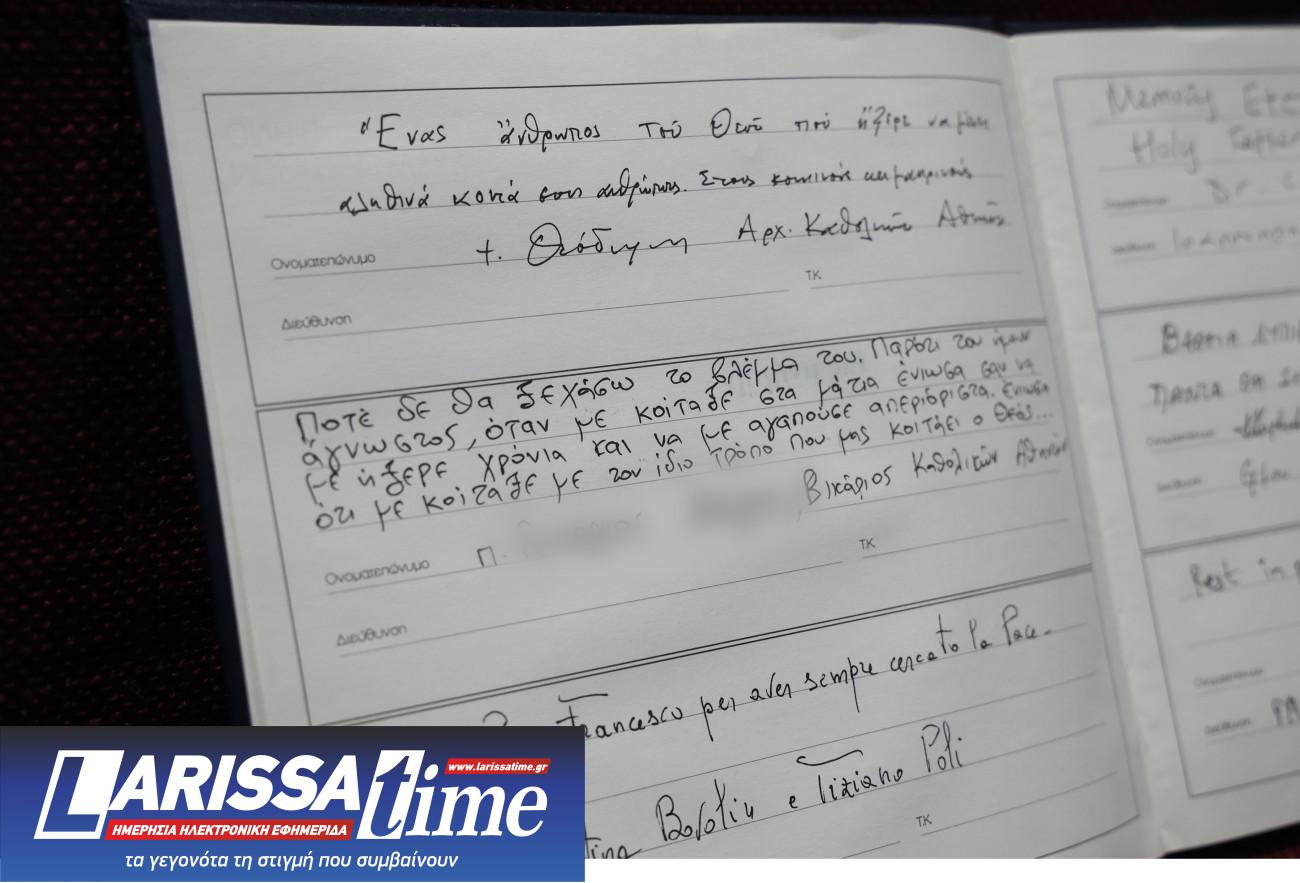 "Ένας ἄνθρωπος τοῦ Θεοῦ ποὺ ἤξερε να μένει
αληθινά κοντά στους ανθρώπους. Στους κοντινούς και μακρινούς
Ονοματεπώνυμο +. Θεόδωρος Αρχ. Καθολικών Αθηνών
ΤΚ
Διεύθυνση
Ποτέ δε θα ξεχάσω το βλέμμα του. Παρότι του ήμουν
άγνωστος, όταν με κοίταξε στα μάτια ένιωσα σαν να
με ήξερε χρόνια και να με αγαπούσε απεριόριστα. Ένιωσα
ότι με κοίταξε με τον ίδιο τρόπο που μας κοιτάει ο Θεός...
Βικάριος Καθολικών Αθηνών
Ονοματεπώνυμο π.
ΤΚ
Διεύθυνση
Francesco per aver sempre cercato la Pace.
e Tiziano Poli
ΤΚ
Memory
Holy
Dr.
Πάντα θα
Rest in
LARISSAtime
www.larissatime.gr
ΗΜΕΡΗΣΙΑ ΗΛΕΚΤΡΟΝΙΚΗ ΕΦΗΜΕΡΙΔΑ
τα γεγονότα τη στιγμή που συμβαίνουν